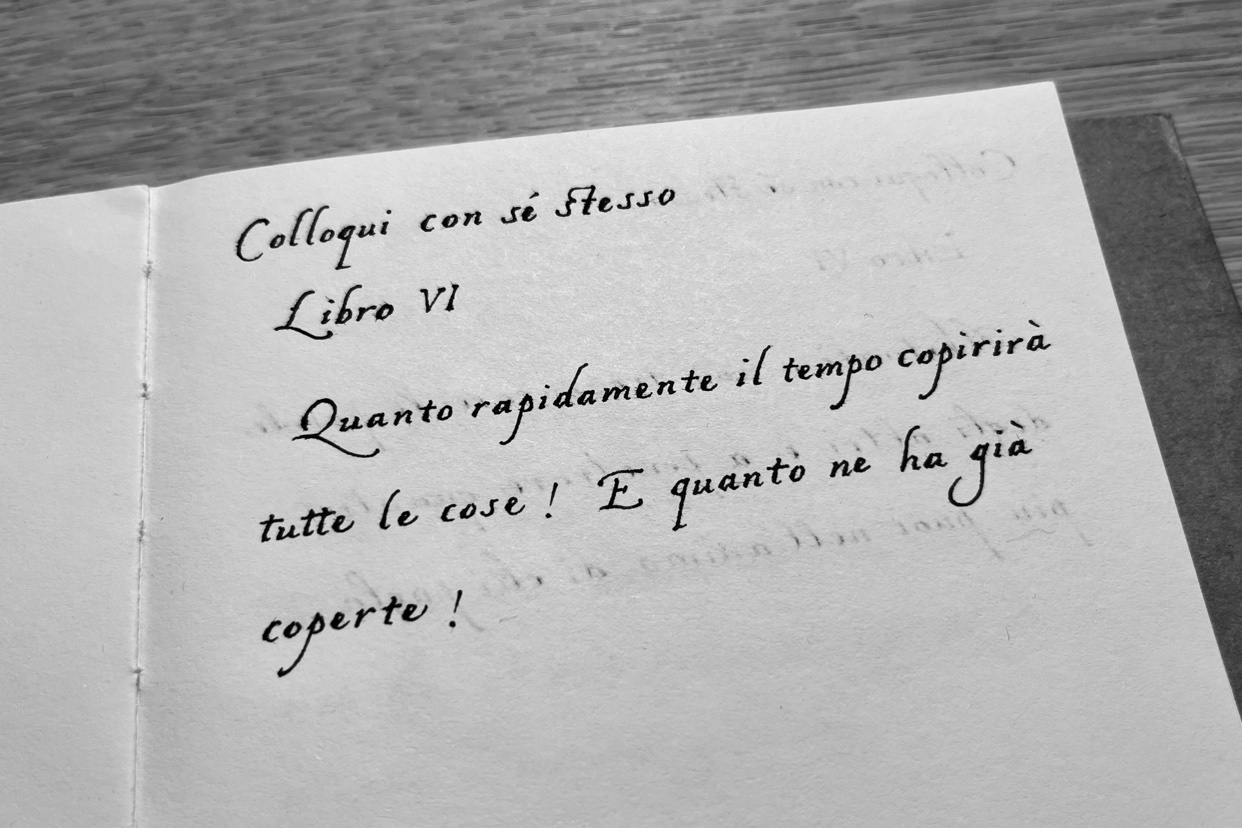 Colloqui con sé stesso
Libro VI
Quanto rapidamente il tempo copirirà
tutte le cose ! E quanto ne ha già
coperte !